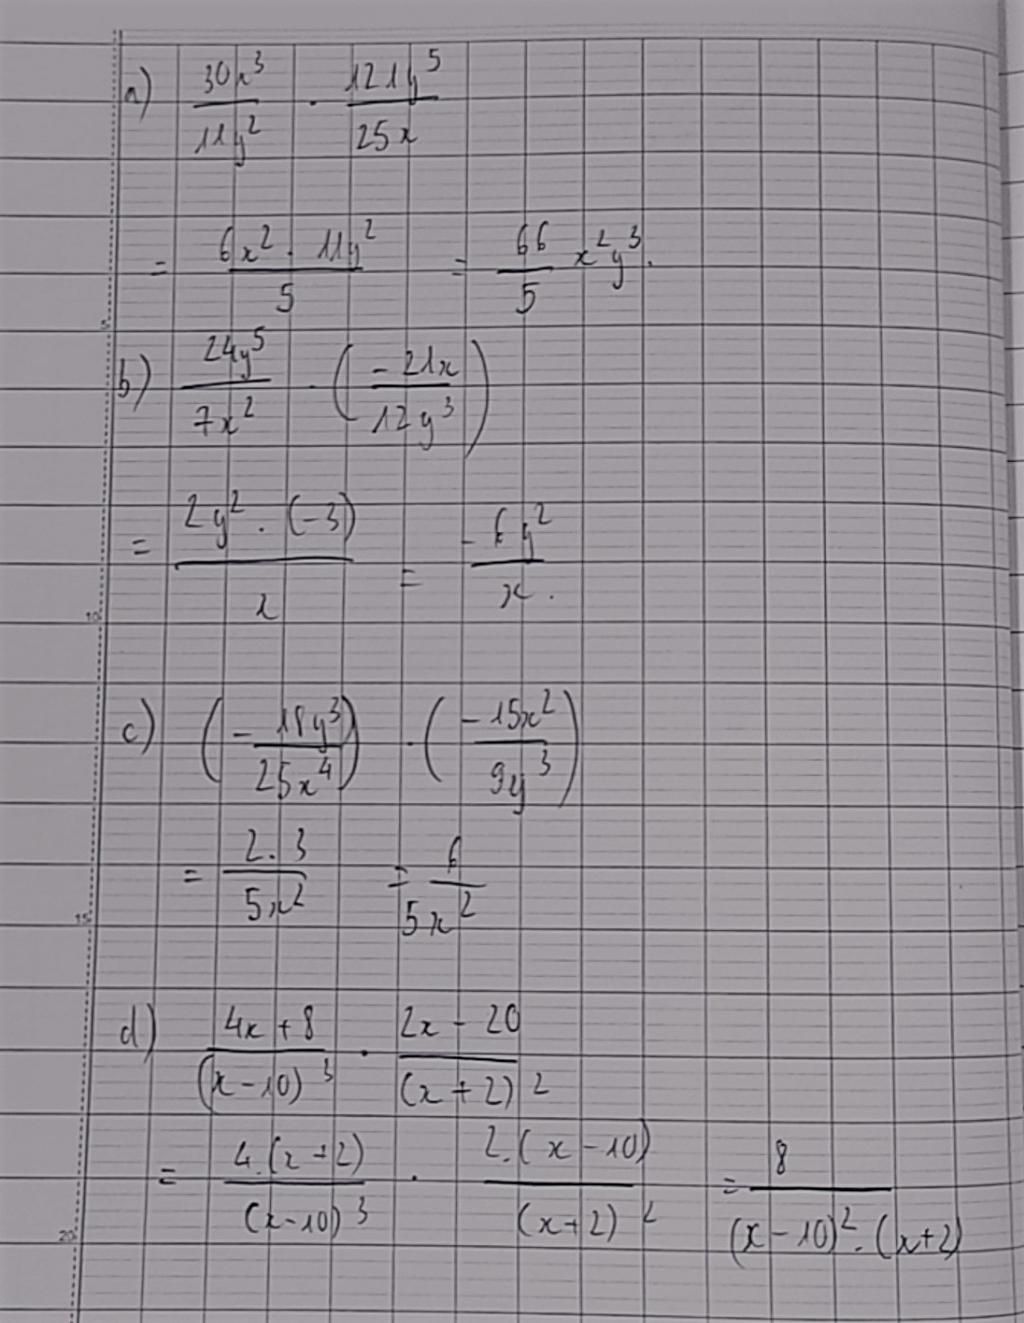 a) \frac{30x^3}{11y^2} \cdot \frac{121y^5}{25x}
= \frac{6x^2 \cdot 11y^2}{5} = \frac{66}{5} x^2y^3.
5
b) \frac{24y^5}{7x^2} \cdot \left(\frac{-21x}{12y^3}\right)
= \frac{2y^2 \cdot (-3)}{x} = \frac{-6y^2}{x}.
10
c) \left(-\frac{18y^3}{25x^4}\right) \cdot \left(\frac{-15x^2}{9y^3}\right)
= \frac{2 \cdot 3}{5x^2} = \frac{6}{5x^2}
15
d) \frac{4x+8}{(x-10)^3} \cdot \frac{2x-20}{(x+2)^2}
= \frac{4 \cdot (x+2)}{(x-10)^3} \cdot \frac{2 \cdot (x-10)}{(x+2)^2} = \frac{8}{(x-10)^2 \cdot (x+2)}
20